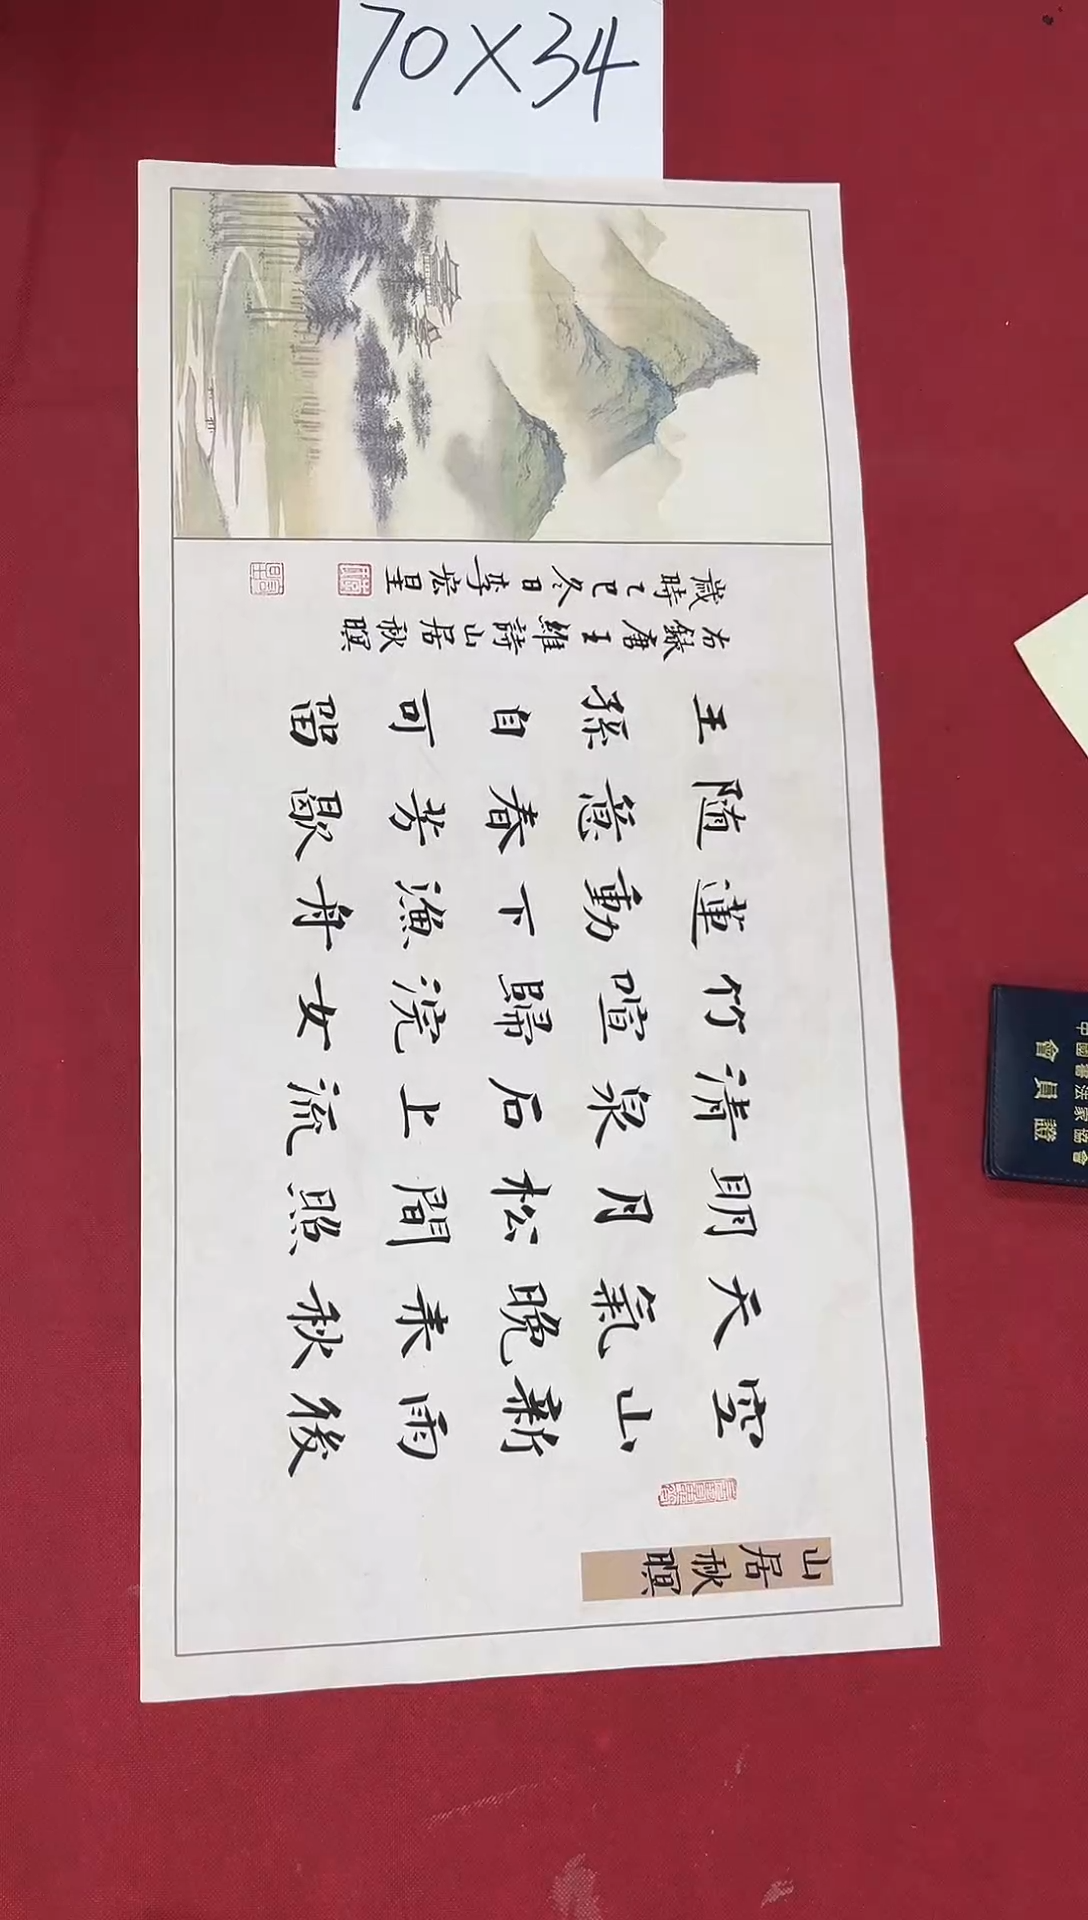 70×34
山居秋暝
空山新雨後
天氣晚来秋
明月松間照
清泉石上流
竹喧歸浣女
蓮動下漁舟
随意春芳歇
王孫自可留
右錄唐王維詩山居秋暝
歲時乙巳冬日李宏星
中國書法家協會
會員證